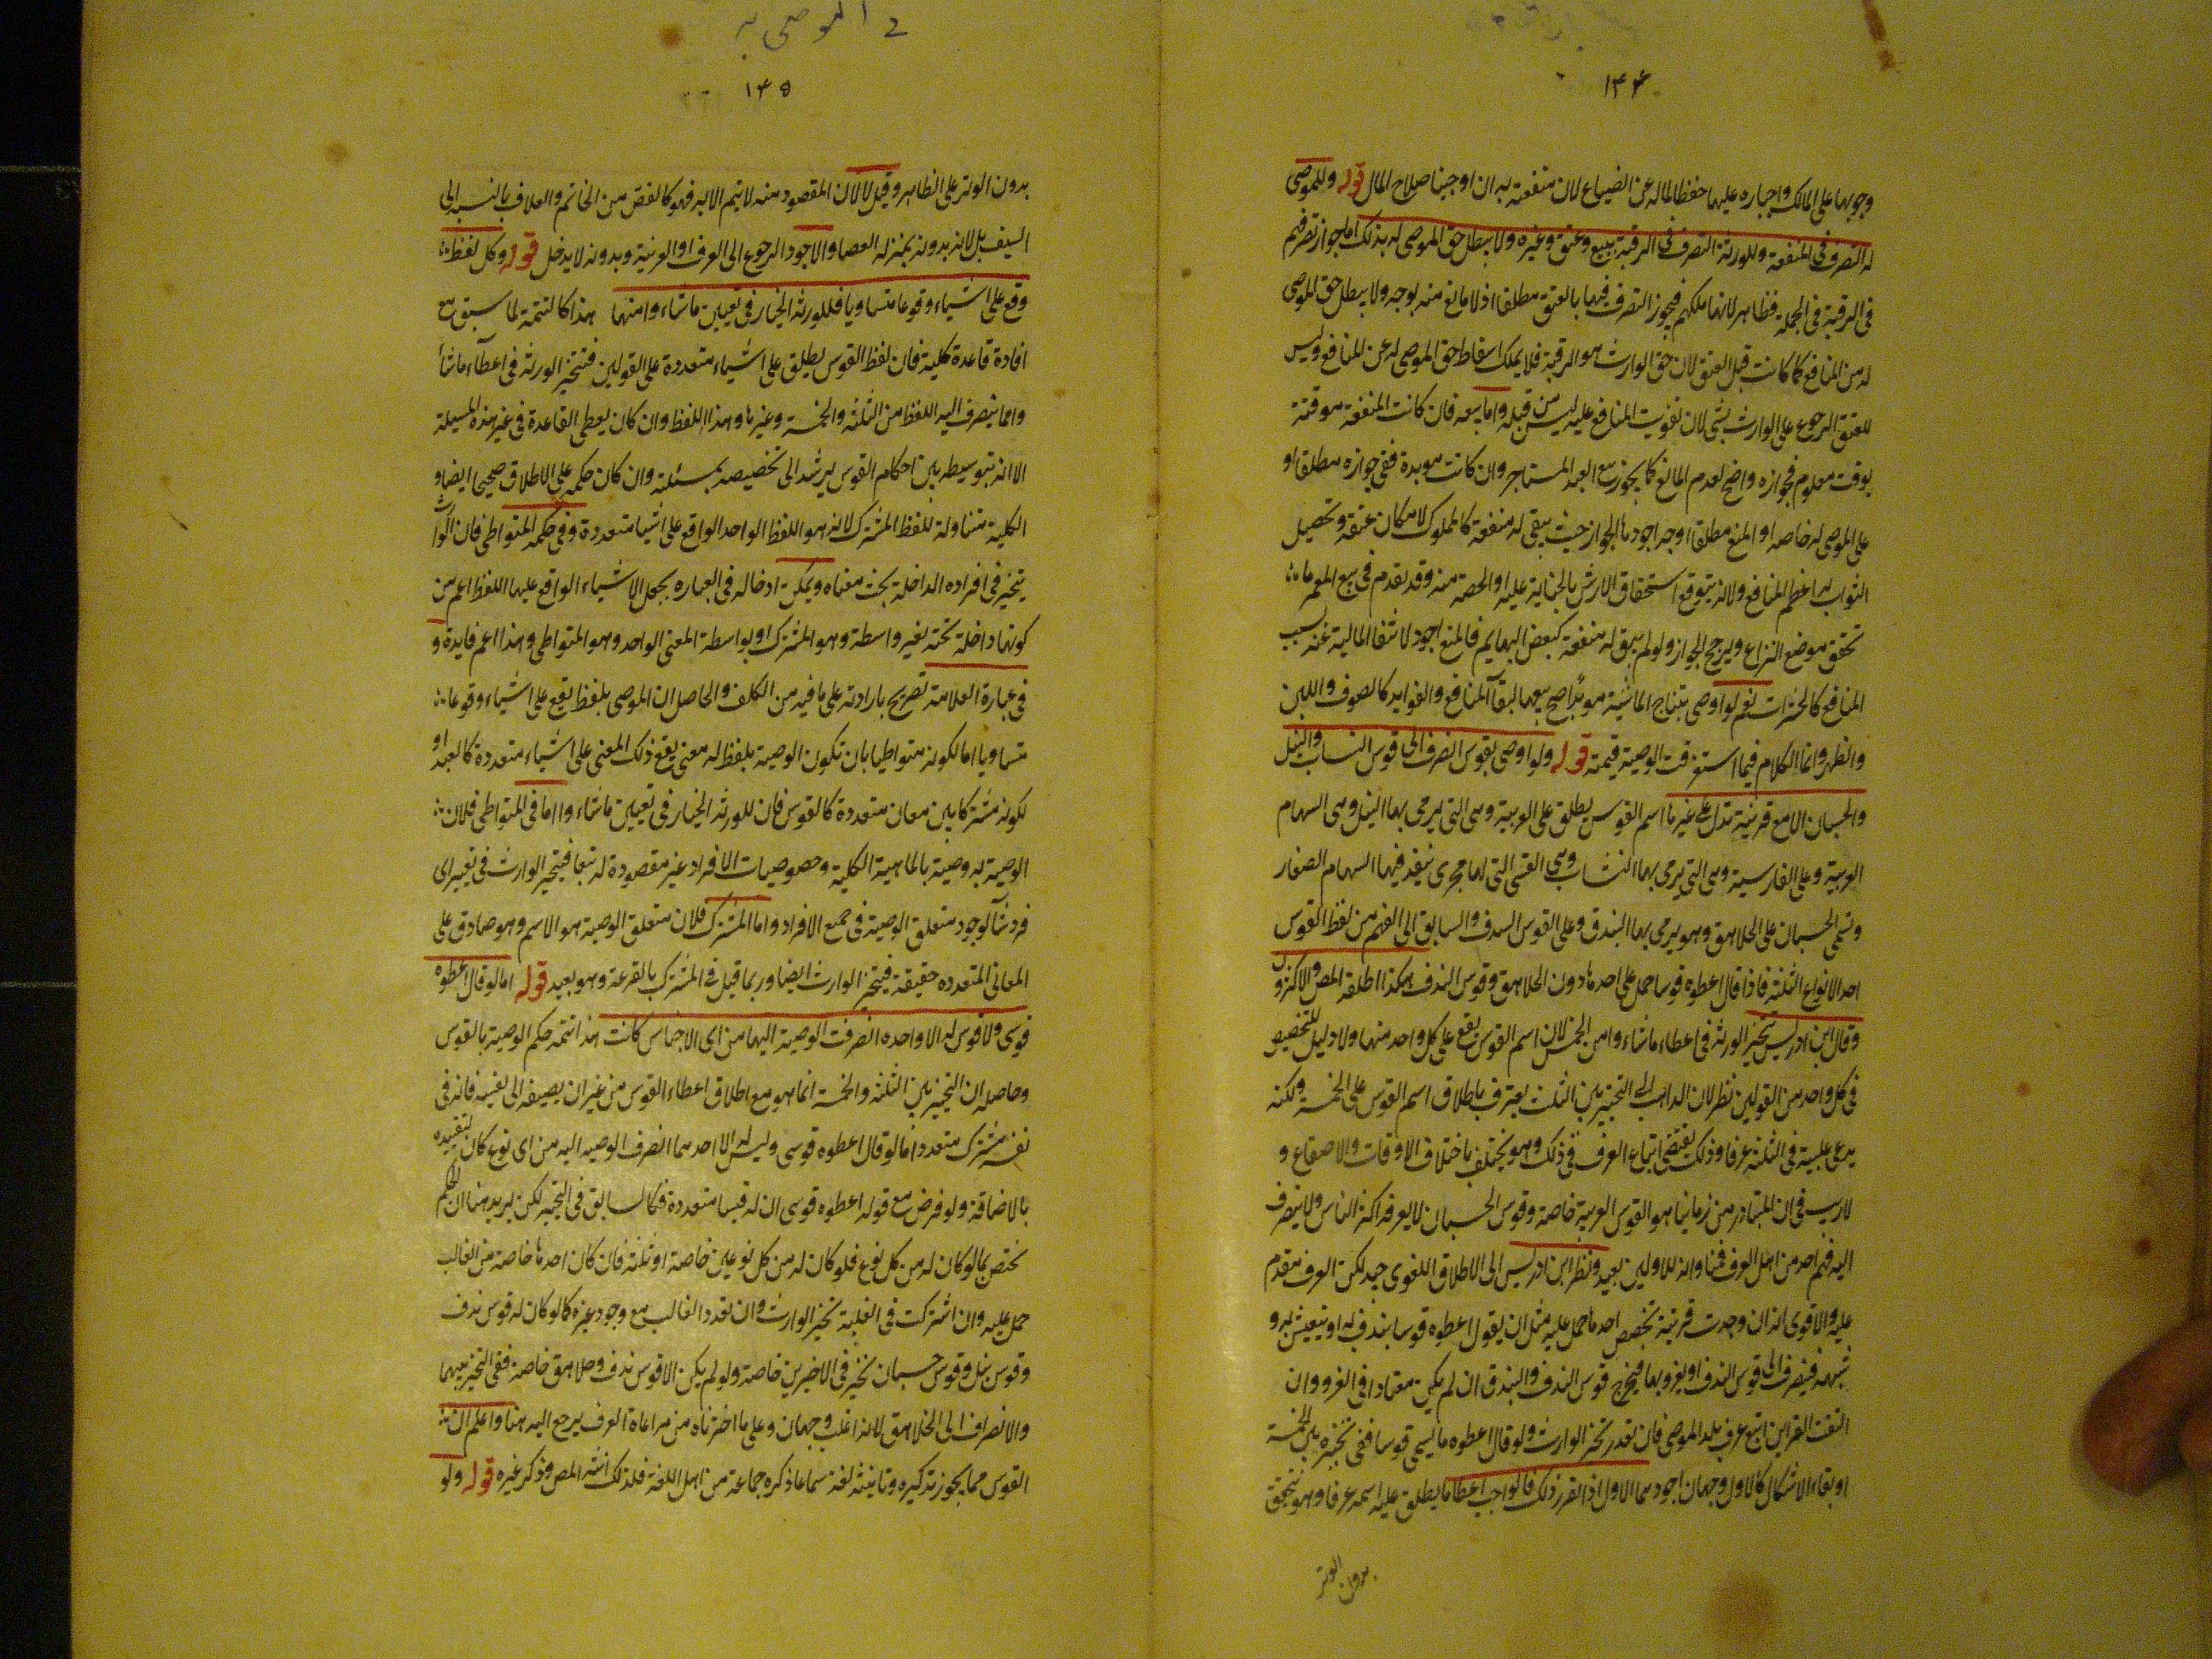 ١٤٤
وجوبها على المالك واجباره عليها حفظا لماله عن الضياع لان منفعته به ان اوجبنا صلاح المال قوله وللموصى
له التصرف فى المنفعة وللورثة التصرف فى الرقبة ببيع وعتق وغيره ولا يبطل حق الموصى له بذلك اما جواز تصرفهم
فى الرقبة فى الجملة فظاهر لانها ملكهم فيجوز التصرف فيها بالعتق مطلقا اذ لا مانع منه بوجه ولا يبطل حق الموصى
له من المنافع كما كانت قبل العتق لان حق الوارث هو الرقبة فلا يملك اسقاط حق الموصى له عن المنافع وليس
للعتق الرجوع على الوارث بشى لان تفويت المنافع عليه ليس من قبله واما بيعه فان كانت المنفعة موقتة
بوقت معلوم فجوازه واضح لعدم المانع كما يجوز بيع العبد المستاجر وان كانت موبدة ففى جوازه مطلقا او
على الموصى له خاصه او المنع مطلقا اوجه اجودها الجواز حيث يبقى له منفعة كالمملوك لامكان عتقه وتحصيل
الثواب به اعظم المنافع ولانه يتوقع استحقاق الارش بالجناية عليه او الحصه منه وقد تقدم فى بيع المعمر ما
تحقق موضع النزاع ويرجح الجواز ولو لم يبق له منفعة كبعض البهايم فالمنع اجود لانتفا المالية عنه بسبب
المنافع كالحشرات نعم لو اوصى بنتاج الماشية موبدا صح بيعها لبقآ المنافع والفوايد كالصوف واللبن
والظهر وانما الكلام فيما استغرقت الوصية قيمته قوله ولو اوصى بقوس انصرف الى قوس النشاب والنبل
والحسبان الا مع قرينة تدل على غيرها اسم القوس يطلق على العربية وهى التى يرمى بها النبل وهى السهام
العربية وعلى الفارسية وهى التى يرمى بها النشاب وهى القسى التى لها مجرى ينفذ فيها السهام الصغار
وتسمى الحسبان على الجلاهق وهو يرمى بها البندق وعلى القوس الندف والسابق الى الفهم من لفظ القوس
احد الانواع الثلثة فاذا قال اعطوه قوسا حمل على احدها دون الجلاهق وقوس الندف هكذا اطلقه المص والاكثر و
وقال ابن ادريس تخير الورثة فى اعطاء ما شاء وا من الخمس لان اسم القوس يقع على كل واحد منها ولا دليل للتخصيص
فى كل واحد من القولين نظر لان الذاهب الى التخيير بين الثلث يعترف باطلاق اسم القوس على الخمسة ولكنه
يدعى غلبته فى الثلثة عرفا وذلك يقتضى اتباع العرف فى ذلك وهو يختلف باختلاف الاوقات والاصقاع و
لاريب فى ان المتبادر من زماننا هو القوس العربية خاصة وقوس الحسبان لايعرفه اكثر الناس ولا ينصرف
اليه فهم احد من اهل العرف فتناوله للاولين بعيد ونظر ابن ادريس الى الاطلاق اللغوى جيد لكن العرف مقدم
عليه والاقوى انه ان وجدت قرينة تخصص احدها حمل عليه مثل ان يقول اعطوه قوسا يندف به او يتعيش به و
شبهه فينصرف الى قوس الندف او يغزو بها فيخرج قوس الندف والبندق ان لم يكن معتادا فى الغزو وان
انتفت القراين اتبع عرف بلد الموصى فان تعدد تخير الوارث ولو قال اعطوه ما يسمى قوسا ففى تخيره بين الخمسة
او بقاء الاشكال كالاول وجهان اجودهما الاول اذا تقرر ذلك فالواجب اعطا ما يطلق عليه اسمه عرفا وهو يتحقق
بدون الوتر
فى الموصى به
١٤٥
بدون الوتر على الظاهر وقيل لا لان المقصود منه لايتم الا به فهو كالفص من الخاتم والغلاف بالنسبة الى
السيف بل لانه بدونه بمنزلة العصا والاجود الرجوع الى العرف او القرينة وبدونه لايدخل قوله وكل لفظ
وقع على اشياء وقوعا متساويا فللورثة الخيار فى تعيين ما شاء وا منها هذا كالتتمة لما سبق مع
افادة قاعدة كلية فان لفظ القوس يطلق على اشياء متعددة على القولين فتتخير الورثة فى اعطآء ما شأ
وا مما ينصرف اليه اللفظ من الثلثة والخمسة وغيرها وهذا اللفظ وان كان يعطى القاعدة فى غير هذه المسيلة
الا انه بتوسيطه بين احكام القوس يرشد الى تخصيصه بمسئلته وان كان حكمه على الاطلاق صحيحا ايضا و
الكلية متناولة للفظ المشترك لانه هو اللفظ الواحد الواقع على اشيا متعددة وفى حكمه المتواطى فان الوارث
يتخير فى افراده الداخلة تحت معناه ويمكن ادخاله فى العباره بجعل الاشياء الواقع عليها اللفظ اعم من
كونها داخلة تحته بغير واسطة وهو المشترك او بواسطة المعنى الواحد وهو المتواطى وهذا اعم فايدة و
فى عبارة العلامة تصريح بارادته على ما فيه من الكلف والحاصل ان الموصى بلفظ يقع على اشياء وقوعا
متساويا اما لكونه متواطيا بان تكون الوصية بلفظ له معنى يقع ذلك المعنى على اشياء متعددة كالعبد او
لكونه مشتركا بين معان متعددة كالقوس فان للورثة الخيار فى تعيين ما شاء وا اما فى المتواطى فلان
الوصية به وصية بالماهية الكلية وخصوصيات الافراد غير مقصودة له تبعا فيتخير الوارث فى تعيين اى
فرد شآ لوجود متعلق الوصية فى جميع الافراد واما المشترك فلان متعلق الوصية هو الاسم وهو صادق على
المعانى المتعدده حقيقة فيتخير الوارث ايضا وربما قيل فى المشترك بالقرعة وهو بعيد قوله اما لو قال اعطوه
قوسى ولا قوس له الا واحده انصرفت الوصية اليها من اى الاجناس كانت هذا تتمه حكم الوصية بالقوس
وحاصله ان التخيير بين الثلثة والخمسة انما هو مع اطلاق اعطاء القوس من غير ان يضيفه الى نفسه فانه فى
نفسه مشترك متعدد اما لو قال اعطوه قوسى وليس له الا احدهما انصرف الوصيه اليه من اى نوع كان لتقييده
بالاضافة ولو فرض مع قوله اعطوه قوسى ان له قسيا متعددة فكالسابق فى التخيير لكن يريد هنا ان الحكم
يختص بما لو كان له من كل نوع فلو كان له من كل نوعين خاصة او ثلثة فان كان احدها خاصة من الغالب
حمل عليه وان اشتركت فى الغلبة تخير الوارث وان تعدد الغالب مع وجود غيره كما لو كان له قوس ندف
وقوس نبل وقوس حسبان تخير فى الاخيرين خاصة ولو لم يكن الا قوس ندف وجلاهق خاصة ففى التخيير بينهما
والانصراف الى الجلاهق لانه اغلب وجهان وعلى ما اخترناه من مراعاة العرف يرجع اليه هنا واعلم ان
القوس مما يجوز تذكيره وتانيثه لغة سماعا ذكره جماعة من اهل اللغة فلذلك انثه المص وذكر غيره قوله ولو